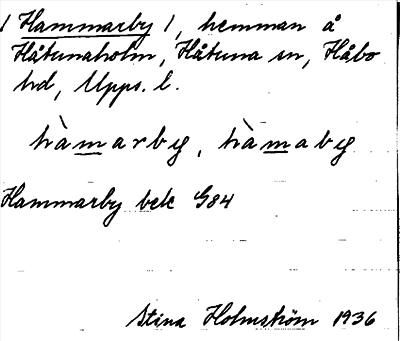 / Hammarby /, hemman å
Håtunaholm, Håtuna sn, Håbo
hd, Upps. l.
hàmarby, hàmaby
Hammarby bek G84
Stina Holmström 1936